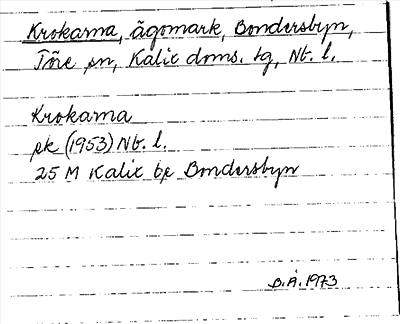 Krokarna, ägomark, Bondersbyn,
Töre sn, Kalix doms. tg, Nb. l.
Krokarna
ek (1953) Nb. l.
25 M Kalix bp Bondersbyn
B.Å. 1973